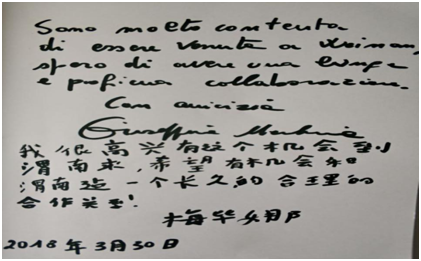 Sono molto contenta
di essere venuta a Weinan,
spero di avere una lunga
e proficua collaborazione.
Con amicizia
Giuseppina
我很高兴有这个机会到
渭南来,希望有机会和
渭南造一个长久的合理的
合作关系!
梅华
2018年3月30日